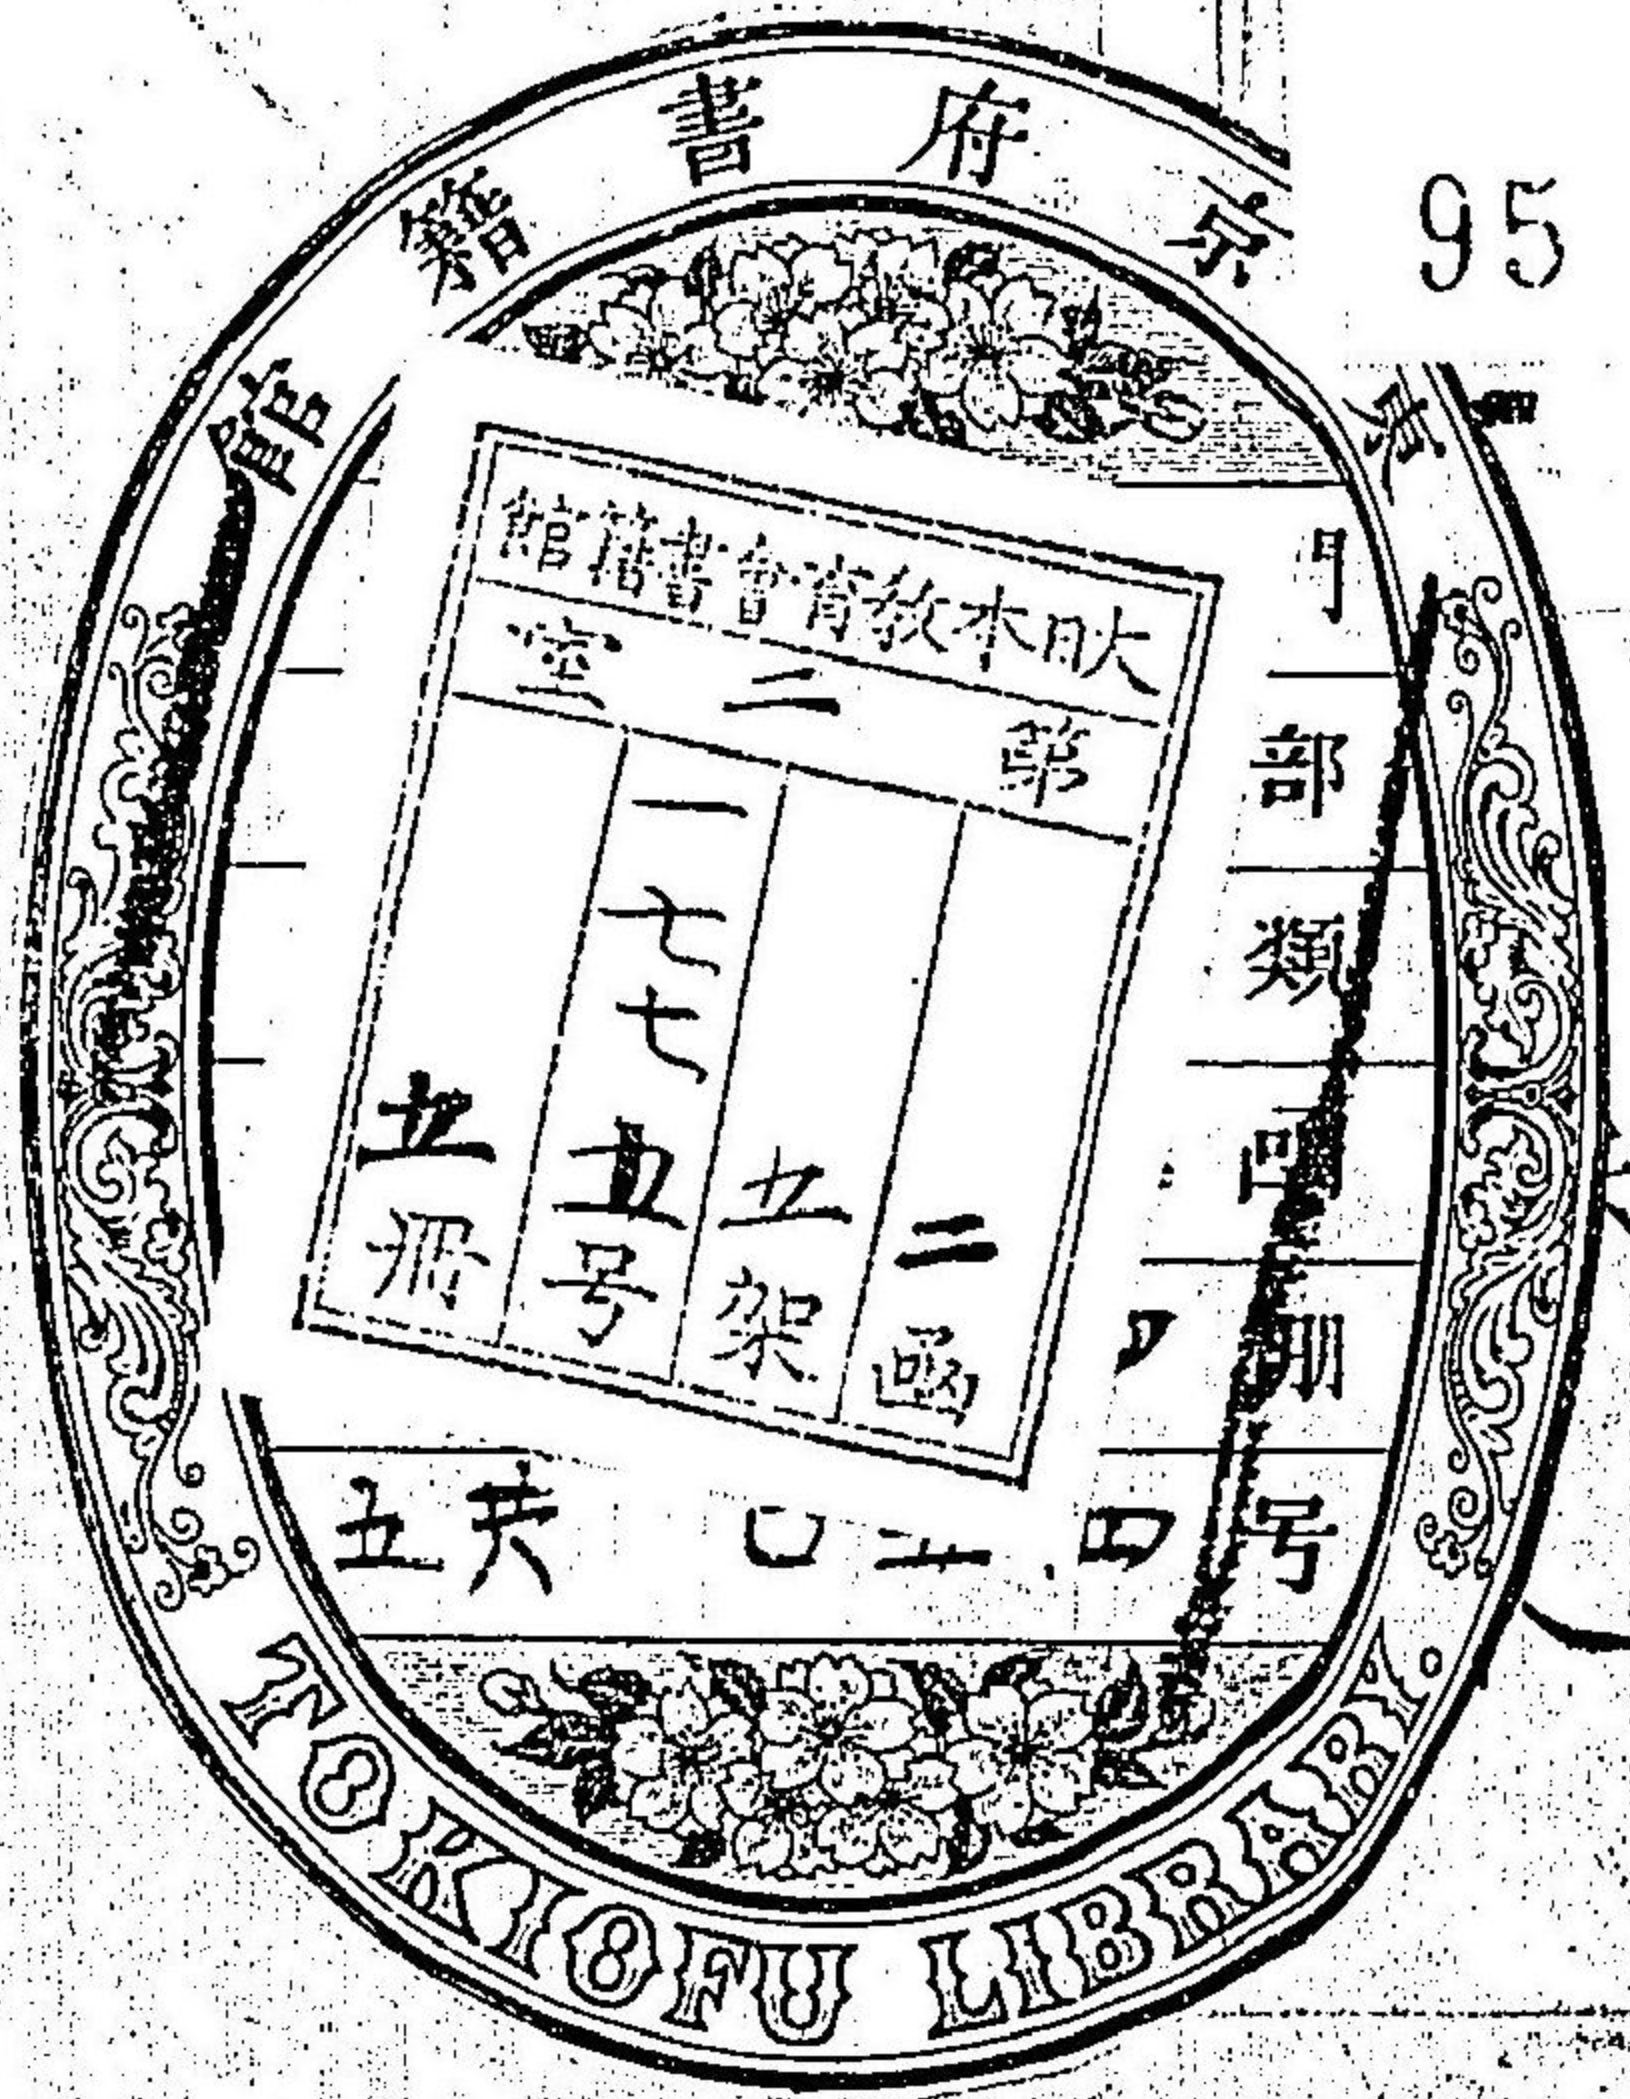 東京府書籍館
95
大日本教育會書籍館
第二室
二函
五架
一七七五号
五冊
門
部
類
函
棚
号
四五〇
共五
TOKIOFU LIBRARY.